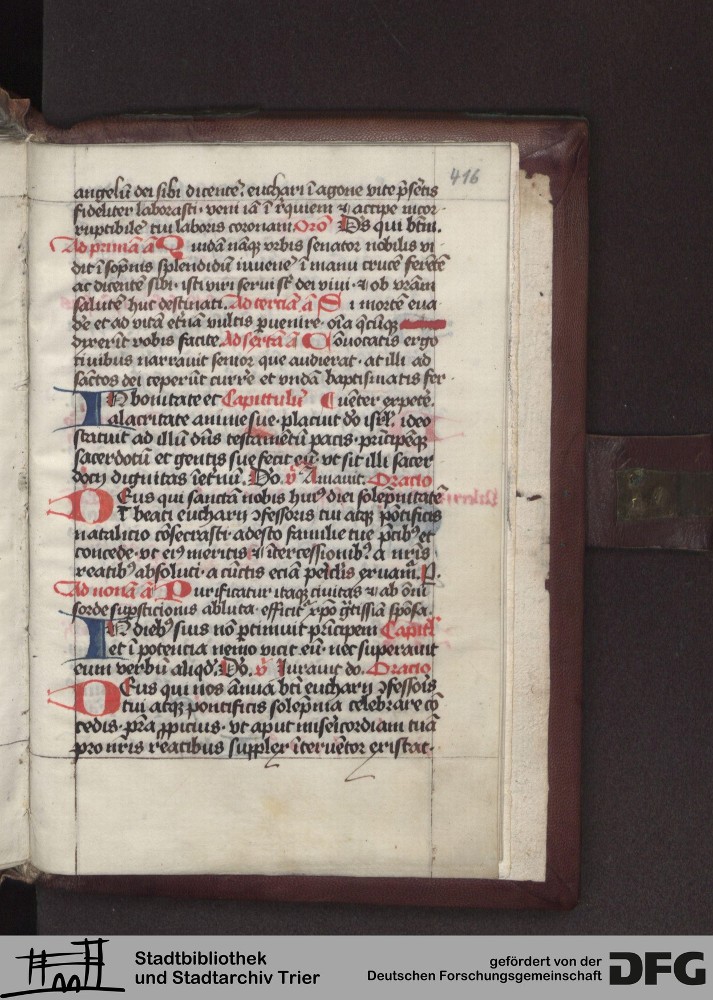 416
angelū dei sibi dicentē. euchari ī agone vite p̄sētis
fideliter laborasti. veni iā ī r̄quiem ⁊ accipe incor-
ruptibilē tui laboris coronam Oro͞ Ds̄ qui btm̄.
Ad primā ā Quidā nāq̄ vrbis senator nobilis vi-
dit ī sōpnis splendidū iuuenē ī manu crucē ferētē
ac dicentē sibi. isti viri serui st̄ dei viui. ⁊ ob vr̄am
salutē huc destinati. Ad terciā ā Si mortē eua-
dē et ad vitā et̄nā vultis ꝑuenire. oīa q̄cūq̄
dixerīt vobis facite. Ad sextā ā Conuocatis ergo
ciuibus narrauit senior que audierat. at illi ad
sāctos dei ceperūt currē et vndā baptismatis fer-
IN bonitate et Capittulū uēter expetē.
alacritate anime sue. placuit do͞ isrl̄. ideo
statuit ad illū dn̄s testamētū pacis. prīcipēq̄
sacerdotū et gentis sue fecit eū. vt sit illi sacer-
docij dignitas īet̄nū. Do. v̄ Amauit. Oracio
DEus qui sanctā nobis huiꝰ diei solēpnitatē
ī beati eucharij ꝯfessoris tui atq̄ pōtificis
natalicio cōsecrasti. adesto familie tue p̄cibꝰ et
concede. vt eiꝰ meritis ⁊ ītercessionibꝰ. a nr̄is
reatibꝰ absoluti. a cūctis eciā pericl̄is eruam̄. P.
Ad nonā ā Purificatur itaq̄ ciuitas ⁊ ab om̄i
sorde suꝑsticionis abluta. efficit᷑ xp̄o gr̄tissīā spōsa.
IN diebꝰ suis nō ptimuit prīcipem Capitl̄
et ī potencia nemo vicit eū. nec superauit
eum verbū aliqd̄. Do. v̄ Iurauit do. Oracio
DEus qui nos ānua bt̄i eucharij ꝯfessoīs
tui atq̄ pontificis solēpnia celebrare cō-
cedis. pr̄a ꝓpicius. vt aput misericordiam tuā
pro nr̄is reatibus supplex īteruētor existat.
Stadtbibliothek
und Stadtarchiv Trier
gefördert von der
Deutschen Forschungsgemeinschaft
DFG